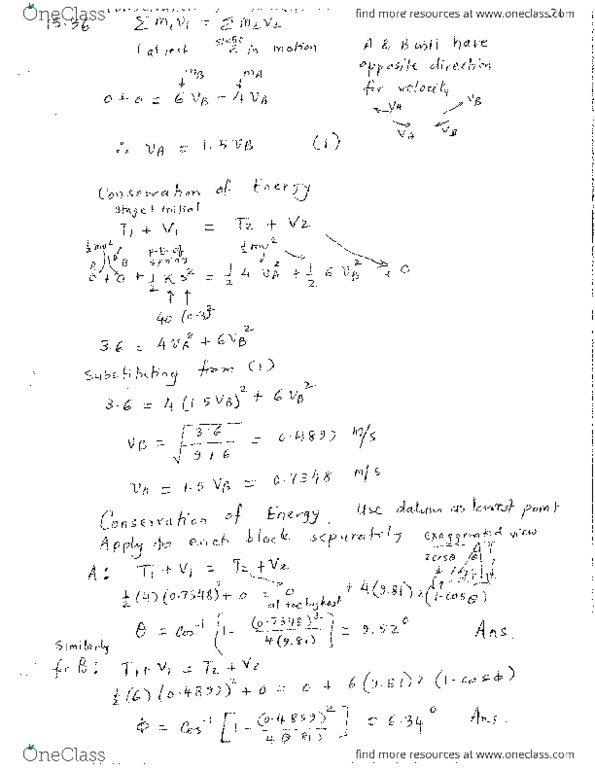 OneClass
find more resources at www.oneclass.com
15.36 Σ m₁v₁ = Σ m₂v₂
1 at rest in motion
A & B will have
opposite direction
for velocity
mB mA
0 + 0 = 6 VB - 4 VA
VA VB
VA VB
∴ VA = 1.5 VB (1)
Conservation of Energy
Stage 1 initial
T₁ + V₁ = T₂ + V₂
½mv² P.E of spring ½mv²
A B
0 + 0 + ½ K S² = ½ 4 VA² + ½ 6 VB² + 0
40 (0.3)²
3.6 = 4 VA² + 6 VB²
Substituting from (1)
3.6 = 4 (1.5 VB)² + 6 VB²
VB = √(3.6 / 9+6) = 0.4899 m/s
VA = 1.5 VB = 0.7348 m/s
Conservation of Energy. Use datum as lowest point
Apply to each block separately exaggerated view
2cosθ θ
A: T₁ + V₁ = T₂ + V₂
½ (4) (0.7348)² + 0 = 0 + 4(9.81) 2 (1-cosθ)
at the highest
θ = cos⁻¹ (1 - (0.7348)² / 4(9.81)) = 9.52° Ans.
Similarly
for B: T₁ + V₁ = T₂ + V₂
½ (6) (0.4899)² + 0 = 0 + 6(9.81) 2 (1-cosϕ)
ϕ = cos⁻¹ [1 - (0.4899)² / 4(9.81)] = 6.34° Ans.
OneClass
find more resources at www.oneclass.com